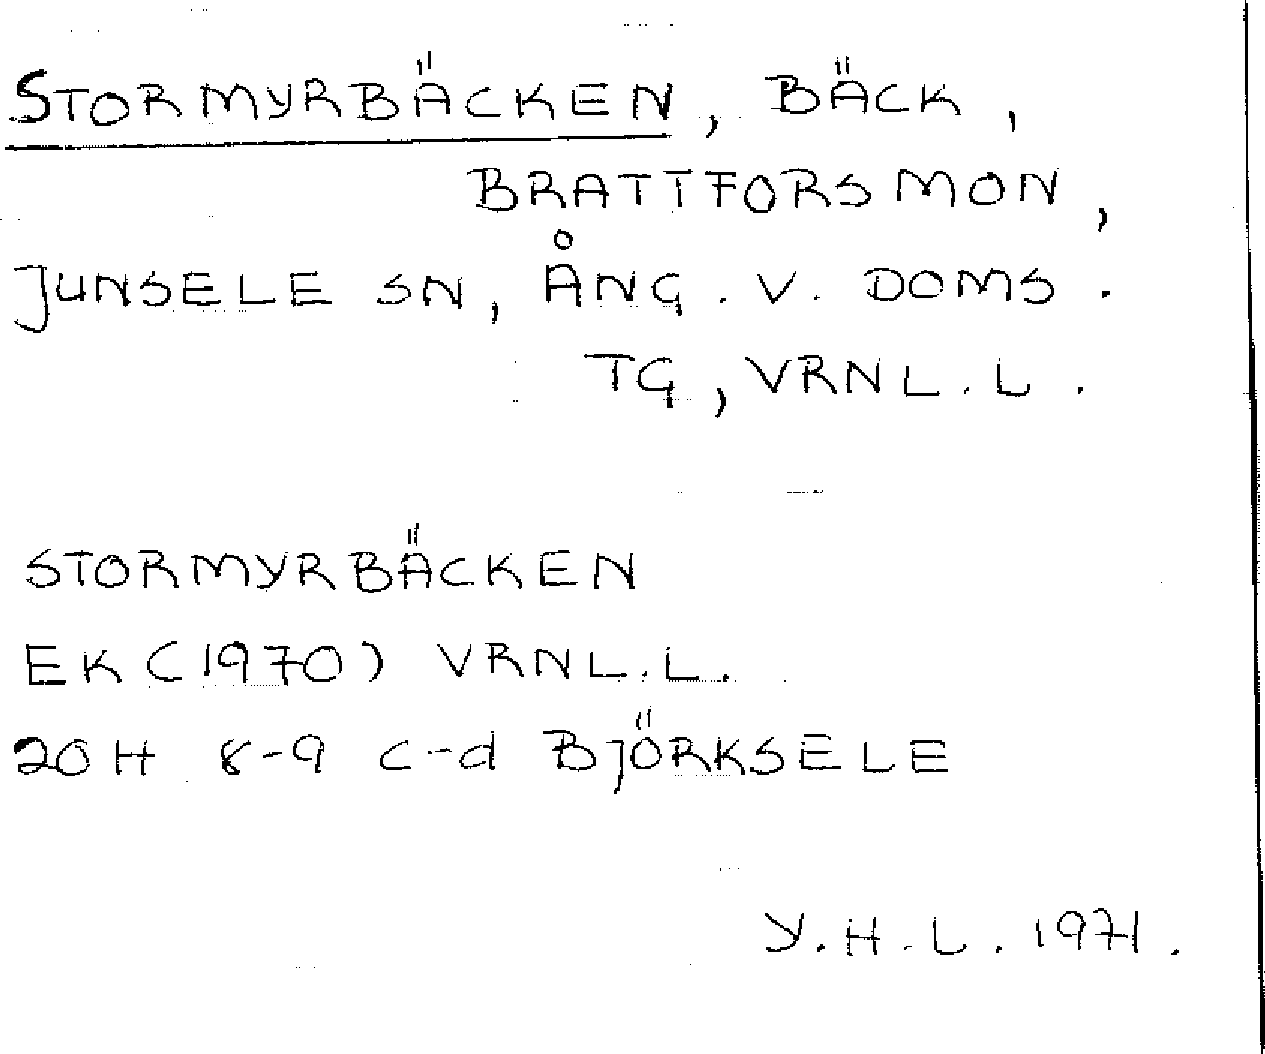 STORMYRBÄCKEN, BÄCK,
BRATTFORSMON,
JUNSELE SN, ÅNG. V. DOMS.
TG, VRNL. L.
STORMYRBÄCKEN
EK (1970) VRNL. L.
20H 8-9 c-d BJÖRKSELE
Y.H.L. 1971.